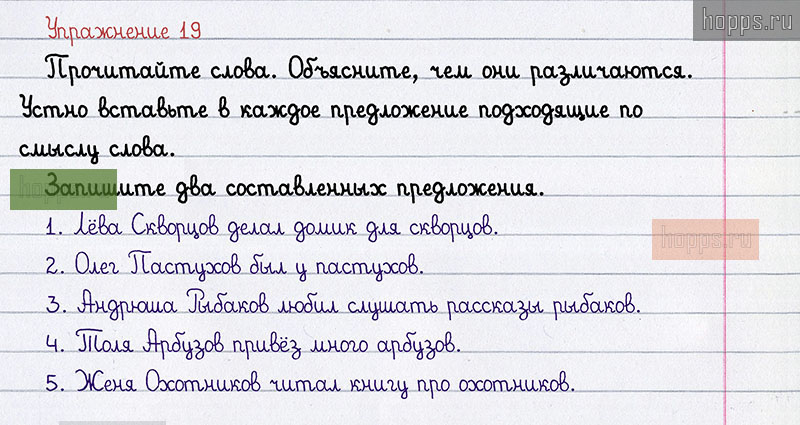 hopps.ru
Упражнение 19
Прочитайте слова. Объясните, чем они различаются.
Устно вставьте в каждое предложение подходящие по
смыслу слова.
Запишите два составленных предложения.
1. Лёва Скворцов делал домик для скворцов.
hopps.ru
2. Олег Пастухов был у пастухов.
3. Андрюша Рыбаков любил слушать рассказы рыбаков.
4. Толя Арбузов привёз много арбузов.
5. Женя Охотников читал книгу про охотников.